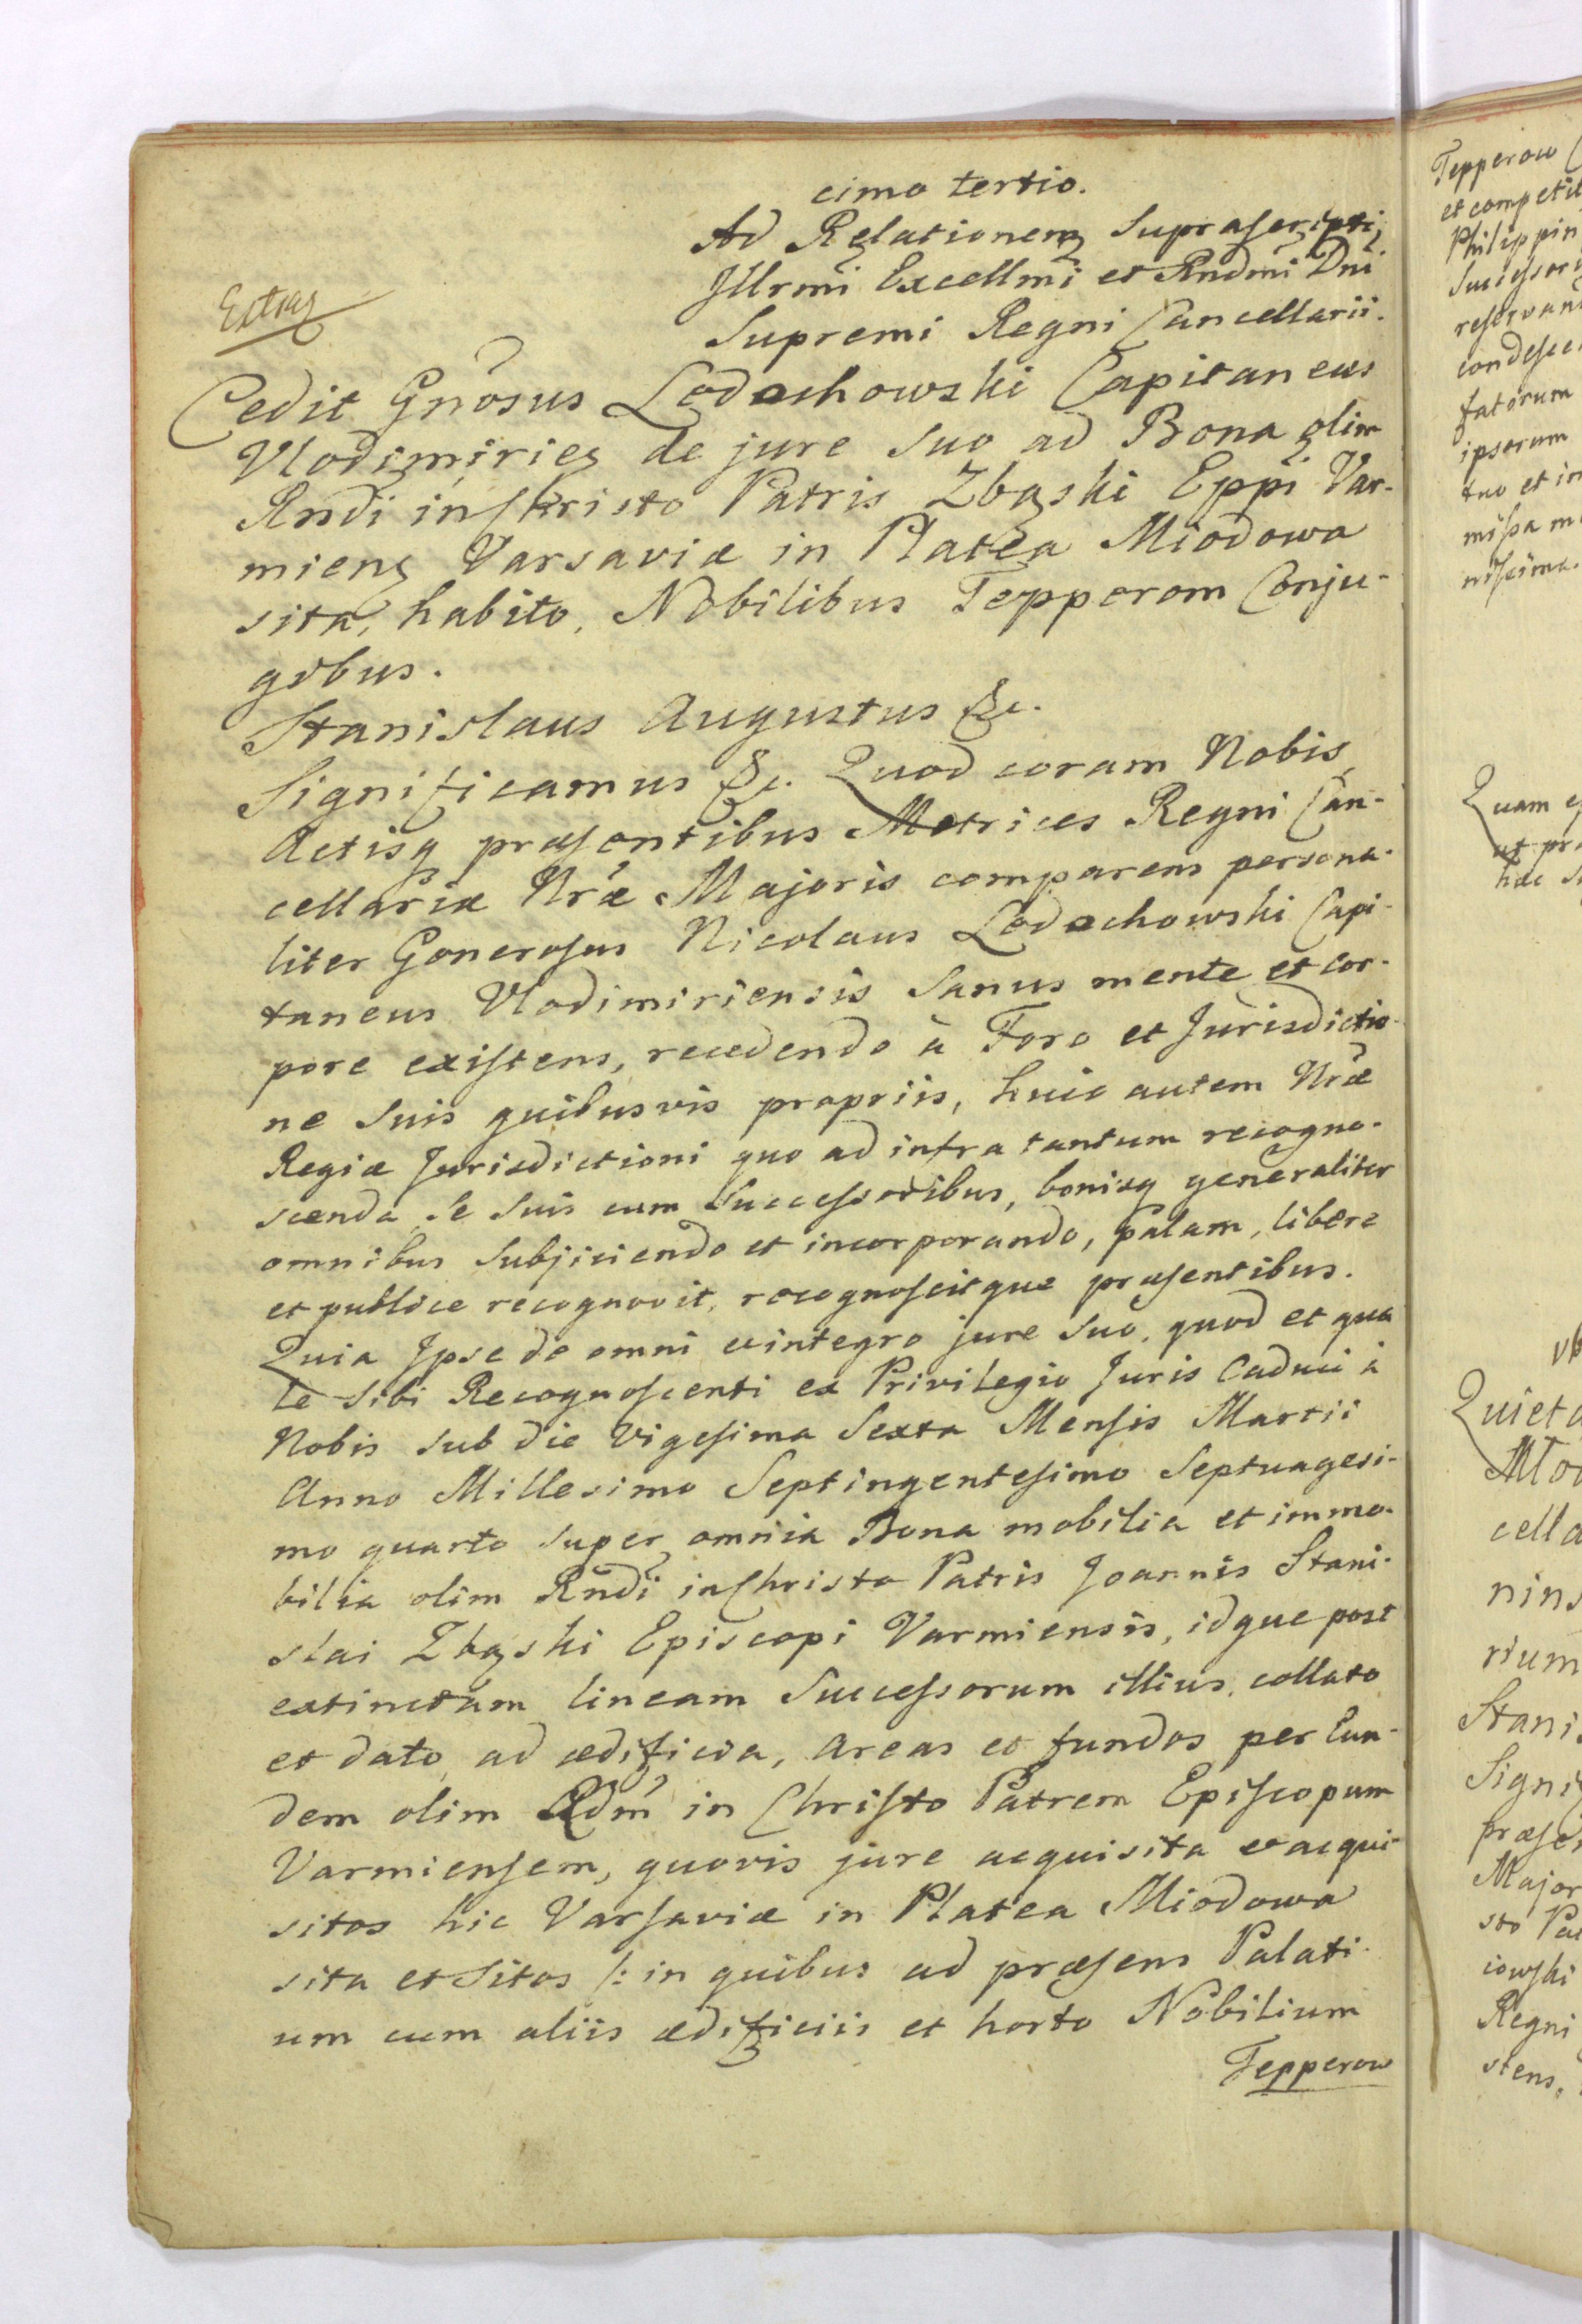 cimo tertio.
Ad Relationem Suprascripti
Jllrmi Excellmi et Rndmi Dni
Supremi Regni Cancellarii.
Extrag
Cedit Gnosus Ledochowski Capitaneus
Vlodimirieg de jure suo ad Bona olim
Rndi in Christo Patris Zbąski Eppi Var-
mieng Varsaviæ in Platea Miodowa
sita, habito, Nobilibus Tepperom Conju-
gibus.
Stanislaus Augustus &c.
Significamus &c. Quod coram Nobis
Actisq præsentibus Metrices Regni Can-
cellariæ Nræ Majoris comparens persona-
liter Generosus Nicolaus Ledochowski Capi-
taneus Vlodimiriensis Sanus mente et cor-
pore existens, recedendo à Foro et Jurisdictio-
ne Suis quibusvis propriis, huic autem Nræ
Regiæ Jurisdictioni quo ad infra tantum recogno-
scenda se suis cum Successoribus, bonisq generaliter
omnibus Subjiciendo et incorporando, palam, libere
et publice recognovit, recognoscitque præsentibus.
Quia Jpse de omni et integro jure suo, quod et qua
le sibi Recognoscenti ex Privilegio Juris Caduci à
Nobis sub die Vigesima Sexta Mensis Martii
Anno Millesimo Septingentesimo Septuagesi-
mo quarto super omnia Bona mobilia et immo-
bilia olim Rndi in Christo Patris Joannis Stani-
slai Zbąski Episcopi Varmiensis, idque post
extinctam lineam Successorum illius, collato
et dato, ad ædificia, areas et fundos per Eun-
dem olim Rdm in Christo Patrem Episcopum
Varmiensem, quovis jure acquisita et acqui-
sitos hic Varsaviæ in Platea Miodowa
sita et sitos /: in quibus ad præsens Palati-
um cum aliis ædificiis et horto Nobilium
Tepperow
Tepperow
et competit
Philippin
Successor
reservan
condesce
fatorum
ipsorum
tuo et in
missa m
Quam
ut pr
hæc
Quiet
cella
nins
rium
Stani
Signi
præse
Major
sto Pa
iowski
Regni
stens,